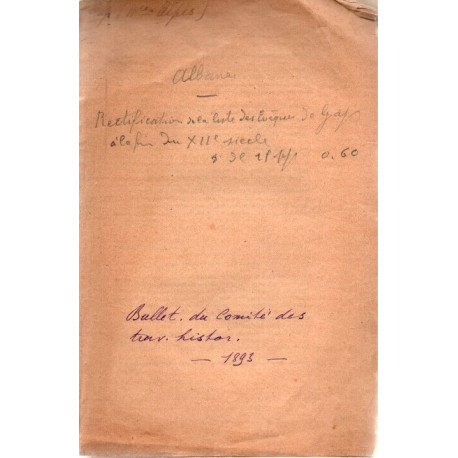 Albanes
Rectification de la liste des Evêques de Gap
à la fin du XIIe siècle
0.60
Bullet. du Comité des
trav. histor.
— 1893 —